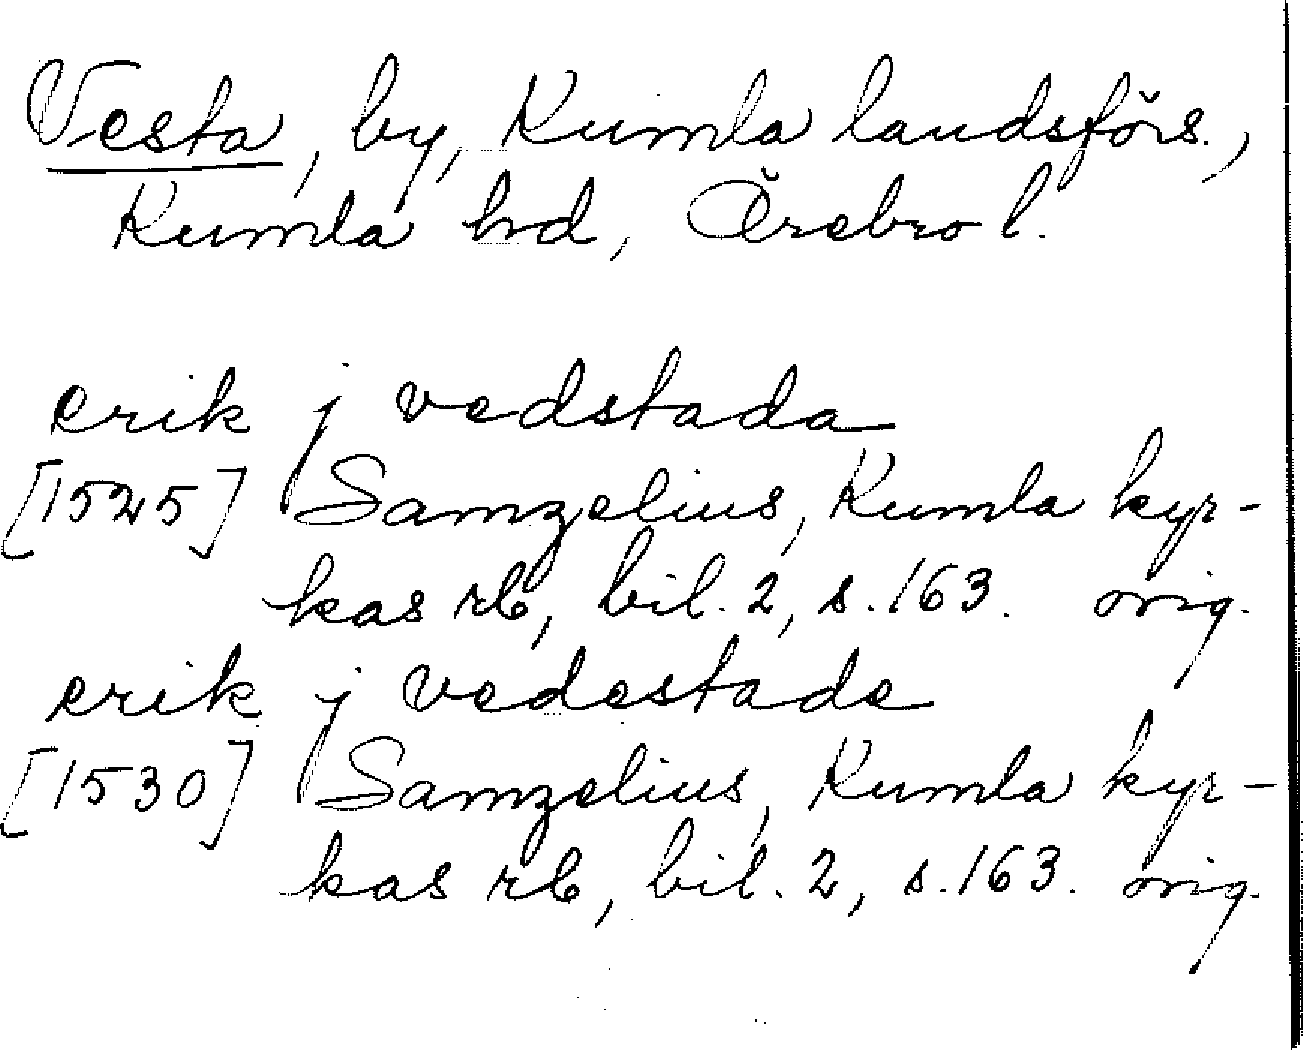 Vesta, by, Kumla landsförs.,
Kumla hd, Örebro l.
erik j vedstada
[1525] Samzelius, Kumla kyr-
kas rb, bil. 2, s. 163. orig.
erik j vedestade
[1530] Samzelius, Kumla kyr-
kas rb, bil. 2, s. 163. orig.